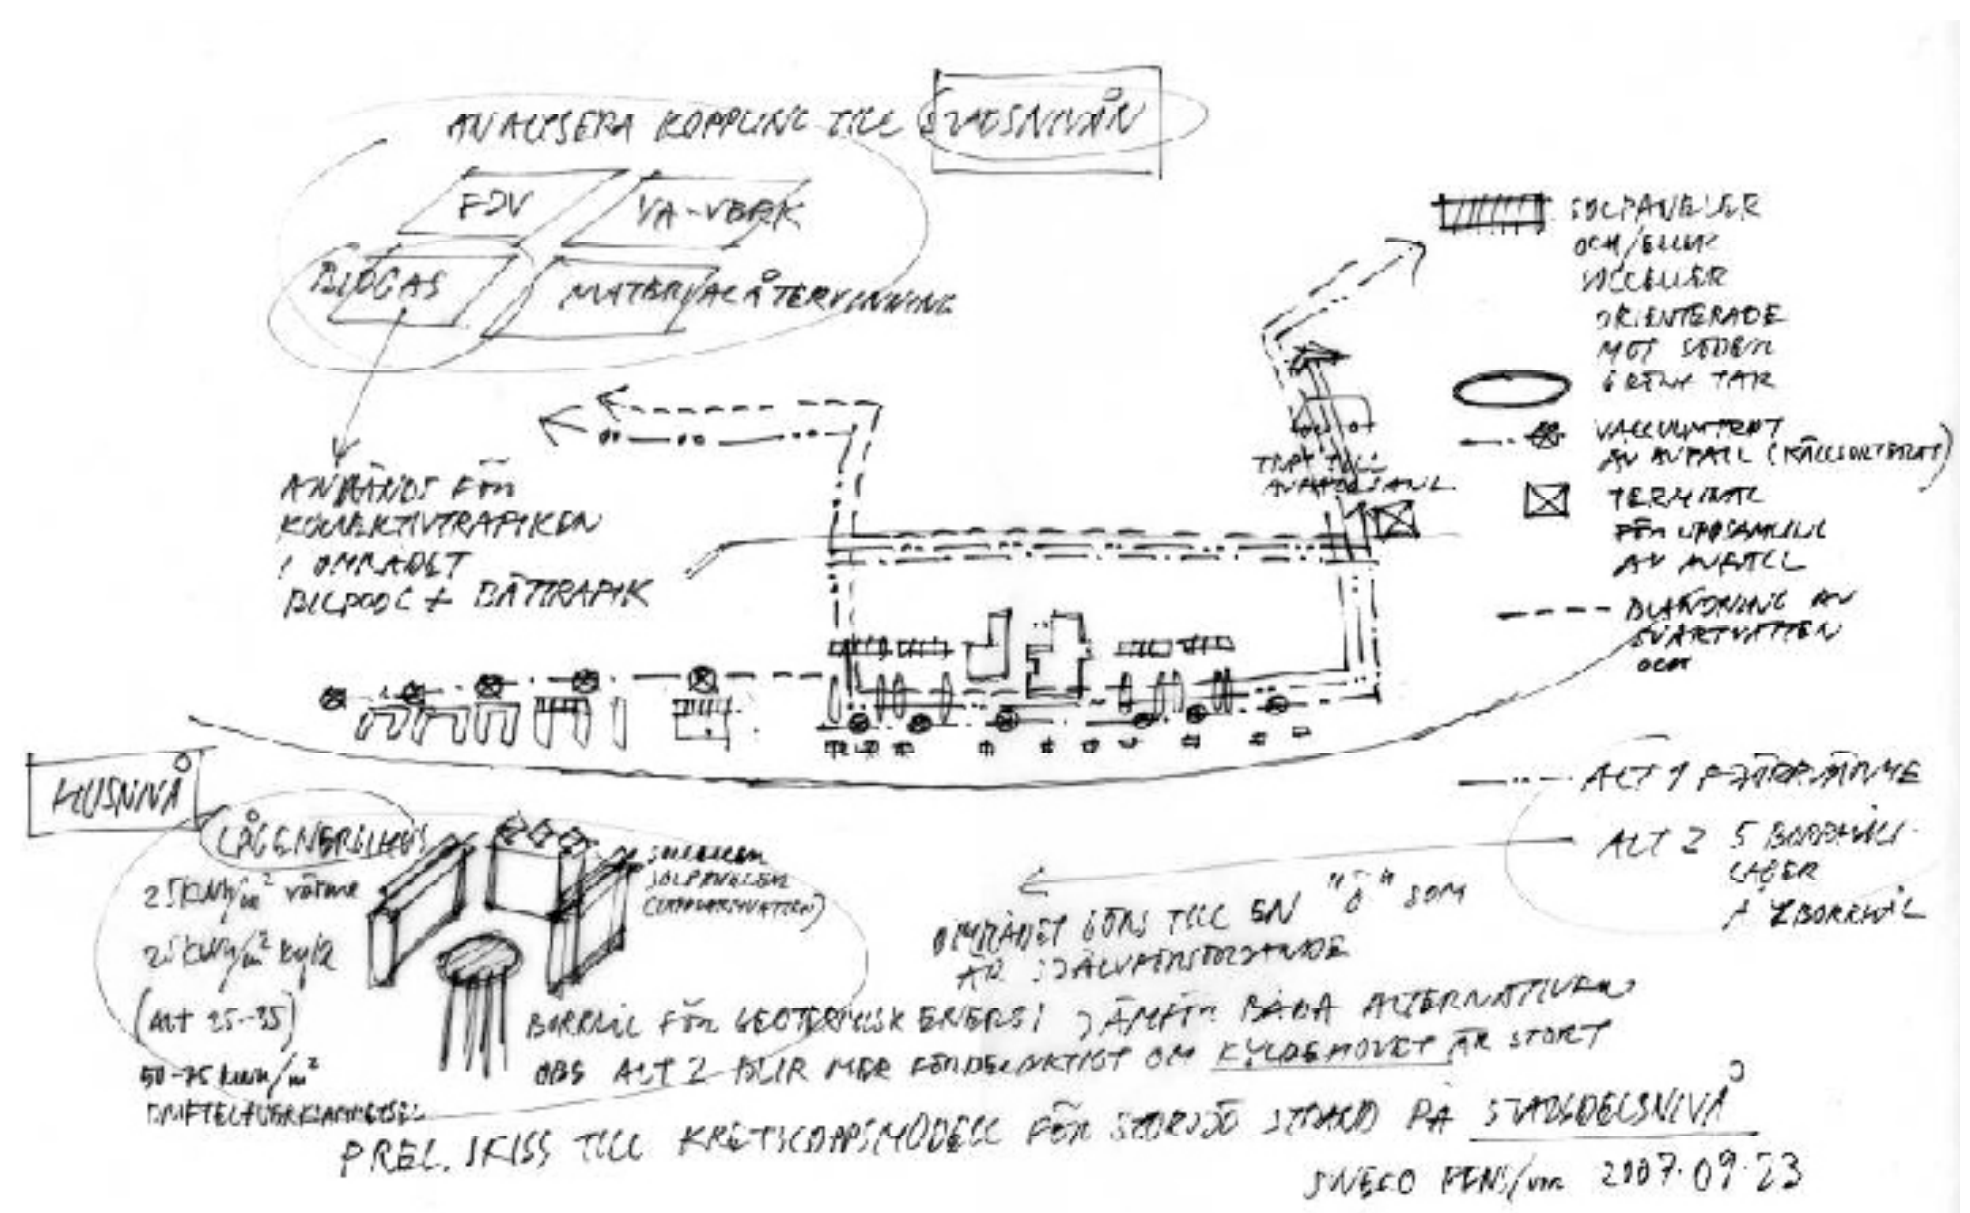 ANALYSERA KOPPLING TILL STADSNIVÅN
FJV
VA-VERK
BIOGAS
MATERIALÅTERVINNING
ANVÄNDS FÖR
KOLLEKTIVTRAFIKEN
I OMRÅDET
BILPOOL + BÅTTRAFIK
SOLPANELER
OCH/ELLER
SOLCELLER
ORIENTERADE
MOT SÖDER
GRÖNA TAK
VACUUMTRPT
AV AVFALL (KÄLLSORTERAT)
TERMINAL
FÖR UPPSAMLING
AV AVFALL
AV
SVARTVATTEN
OCH
TRPT TILL
AVFALLSANL.
HUSNIVÅ
LÅGENERGIHUS
25 KWh/m² värme
25 KWh/m² kyla
(ALT 25-35)
50-75 kWh/m²
SOLCELLER
SOLPANELER
ALT 1 FJÄRRVÄRME
ALT 2 5 BORRHÅLS-
LAGER
BORRHÅL
OMRÅDET GÖRS TILL EN "Ö" SOM
ÄR SJÄLVFÖRSÖRJANDE
BORRHÅL FÖR GEOTERMISK ENERGI JÄMFÖR BÅDA ALTERNATIVEN
OBS ALT 2 BLIR MER FÖRDELAKTIGT OM KYLBEHOVET ÄR STORT
PREL. SKISS TILL KRETSLOPPSMODELL FÖR STORSJÖ STRAND PÅ STADSDELSNIVÅ
SWECO 2007.09.23